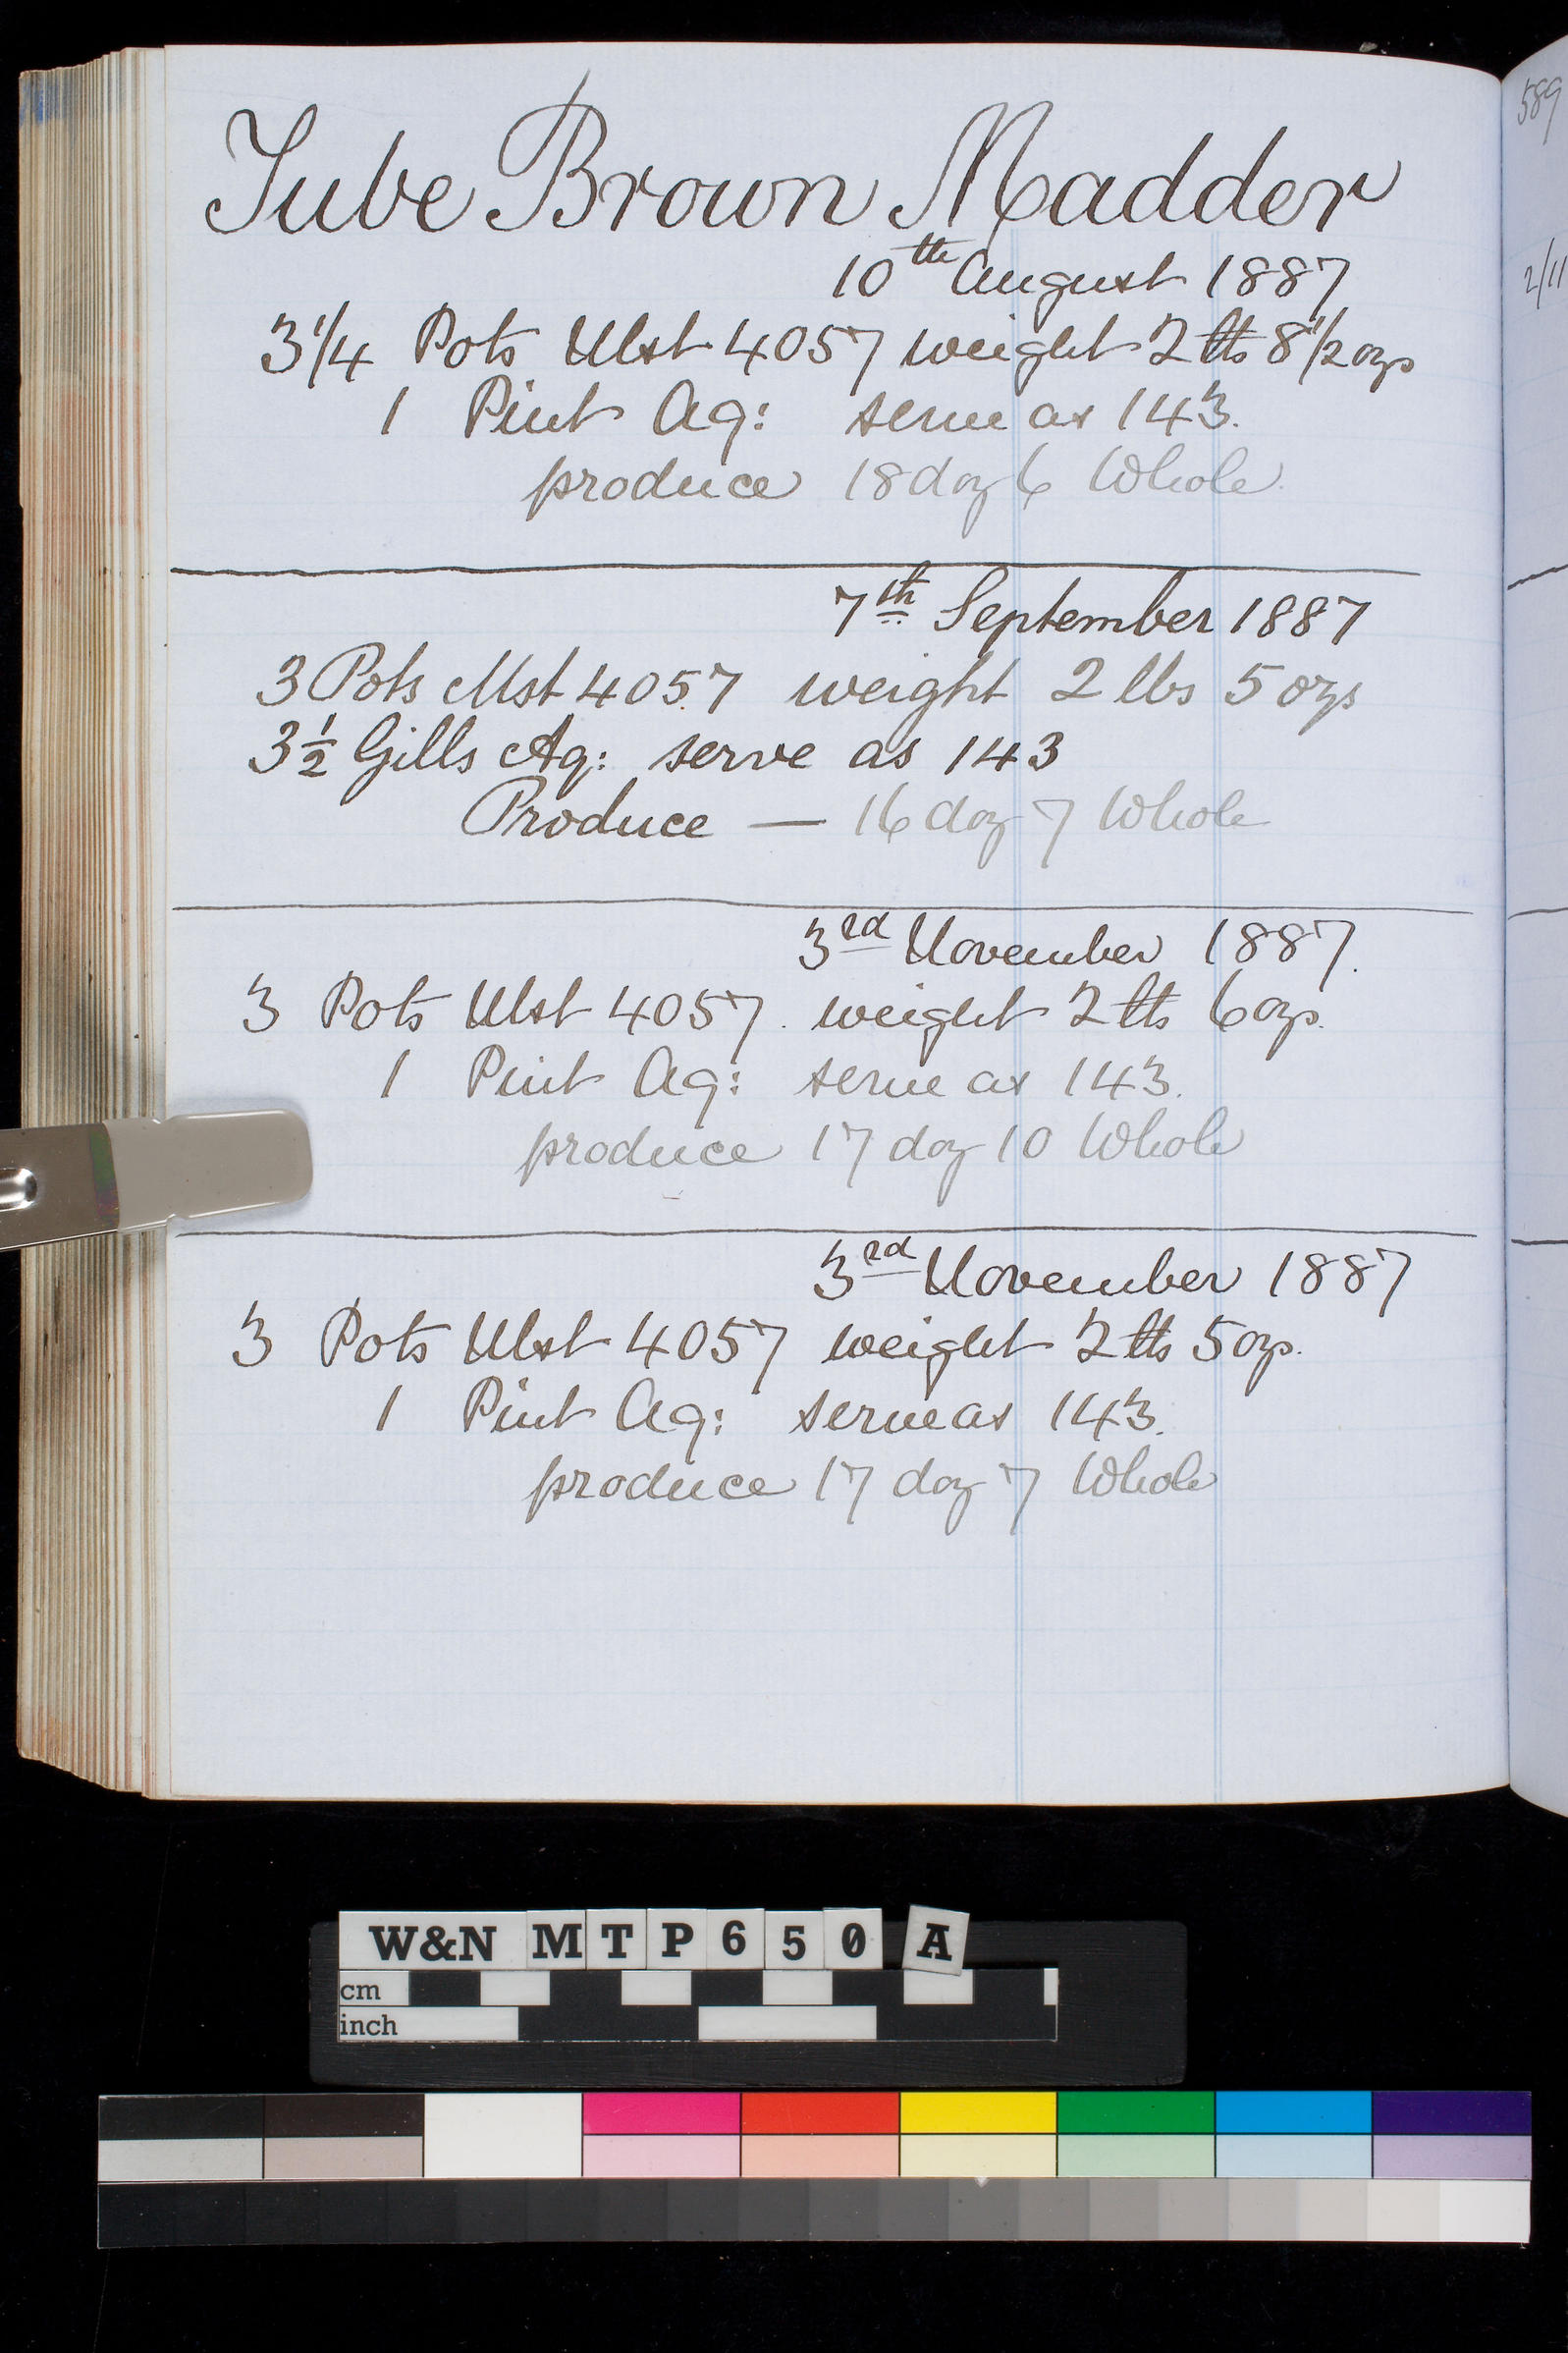 Tube Brown Madder
10th August 1887
3 1/4 Pots Mst 4057 weight 2 lbs 8 1/2 ozs
1 Pint Aq: serve as 143.
produce 18 doz 6 Whole.
7th September 1887
3 Pots Mst 4057 weight 2 lbs 5 ozs
3 1/2 Gills Aq: serve as 143
Produce — 16 doz 7 Whole
3rd November 1887.
3 Pots Mst 4057. weight 2 lbs 6 ozs.
1 Pint Aq: serve as 143.
produce 17 doz 10 Whole
3rd November 1887
3 Pots Mst 4057 weight 2 lbs 5 ozs.
1 Pint Aq: serve as 143.
produce 17 doz 7 Whole
589
2/11
W&N MTP650 A
cm
inch